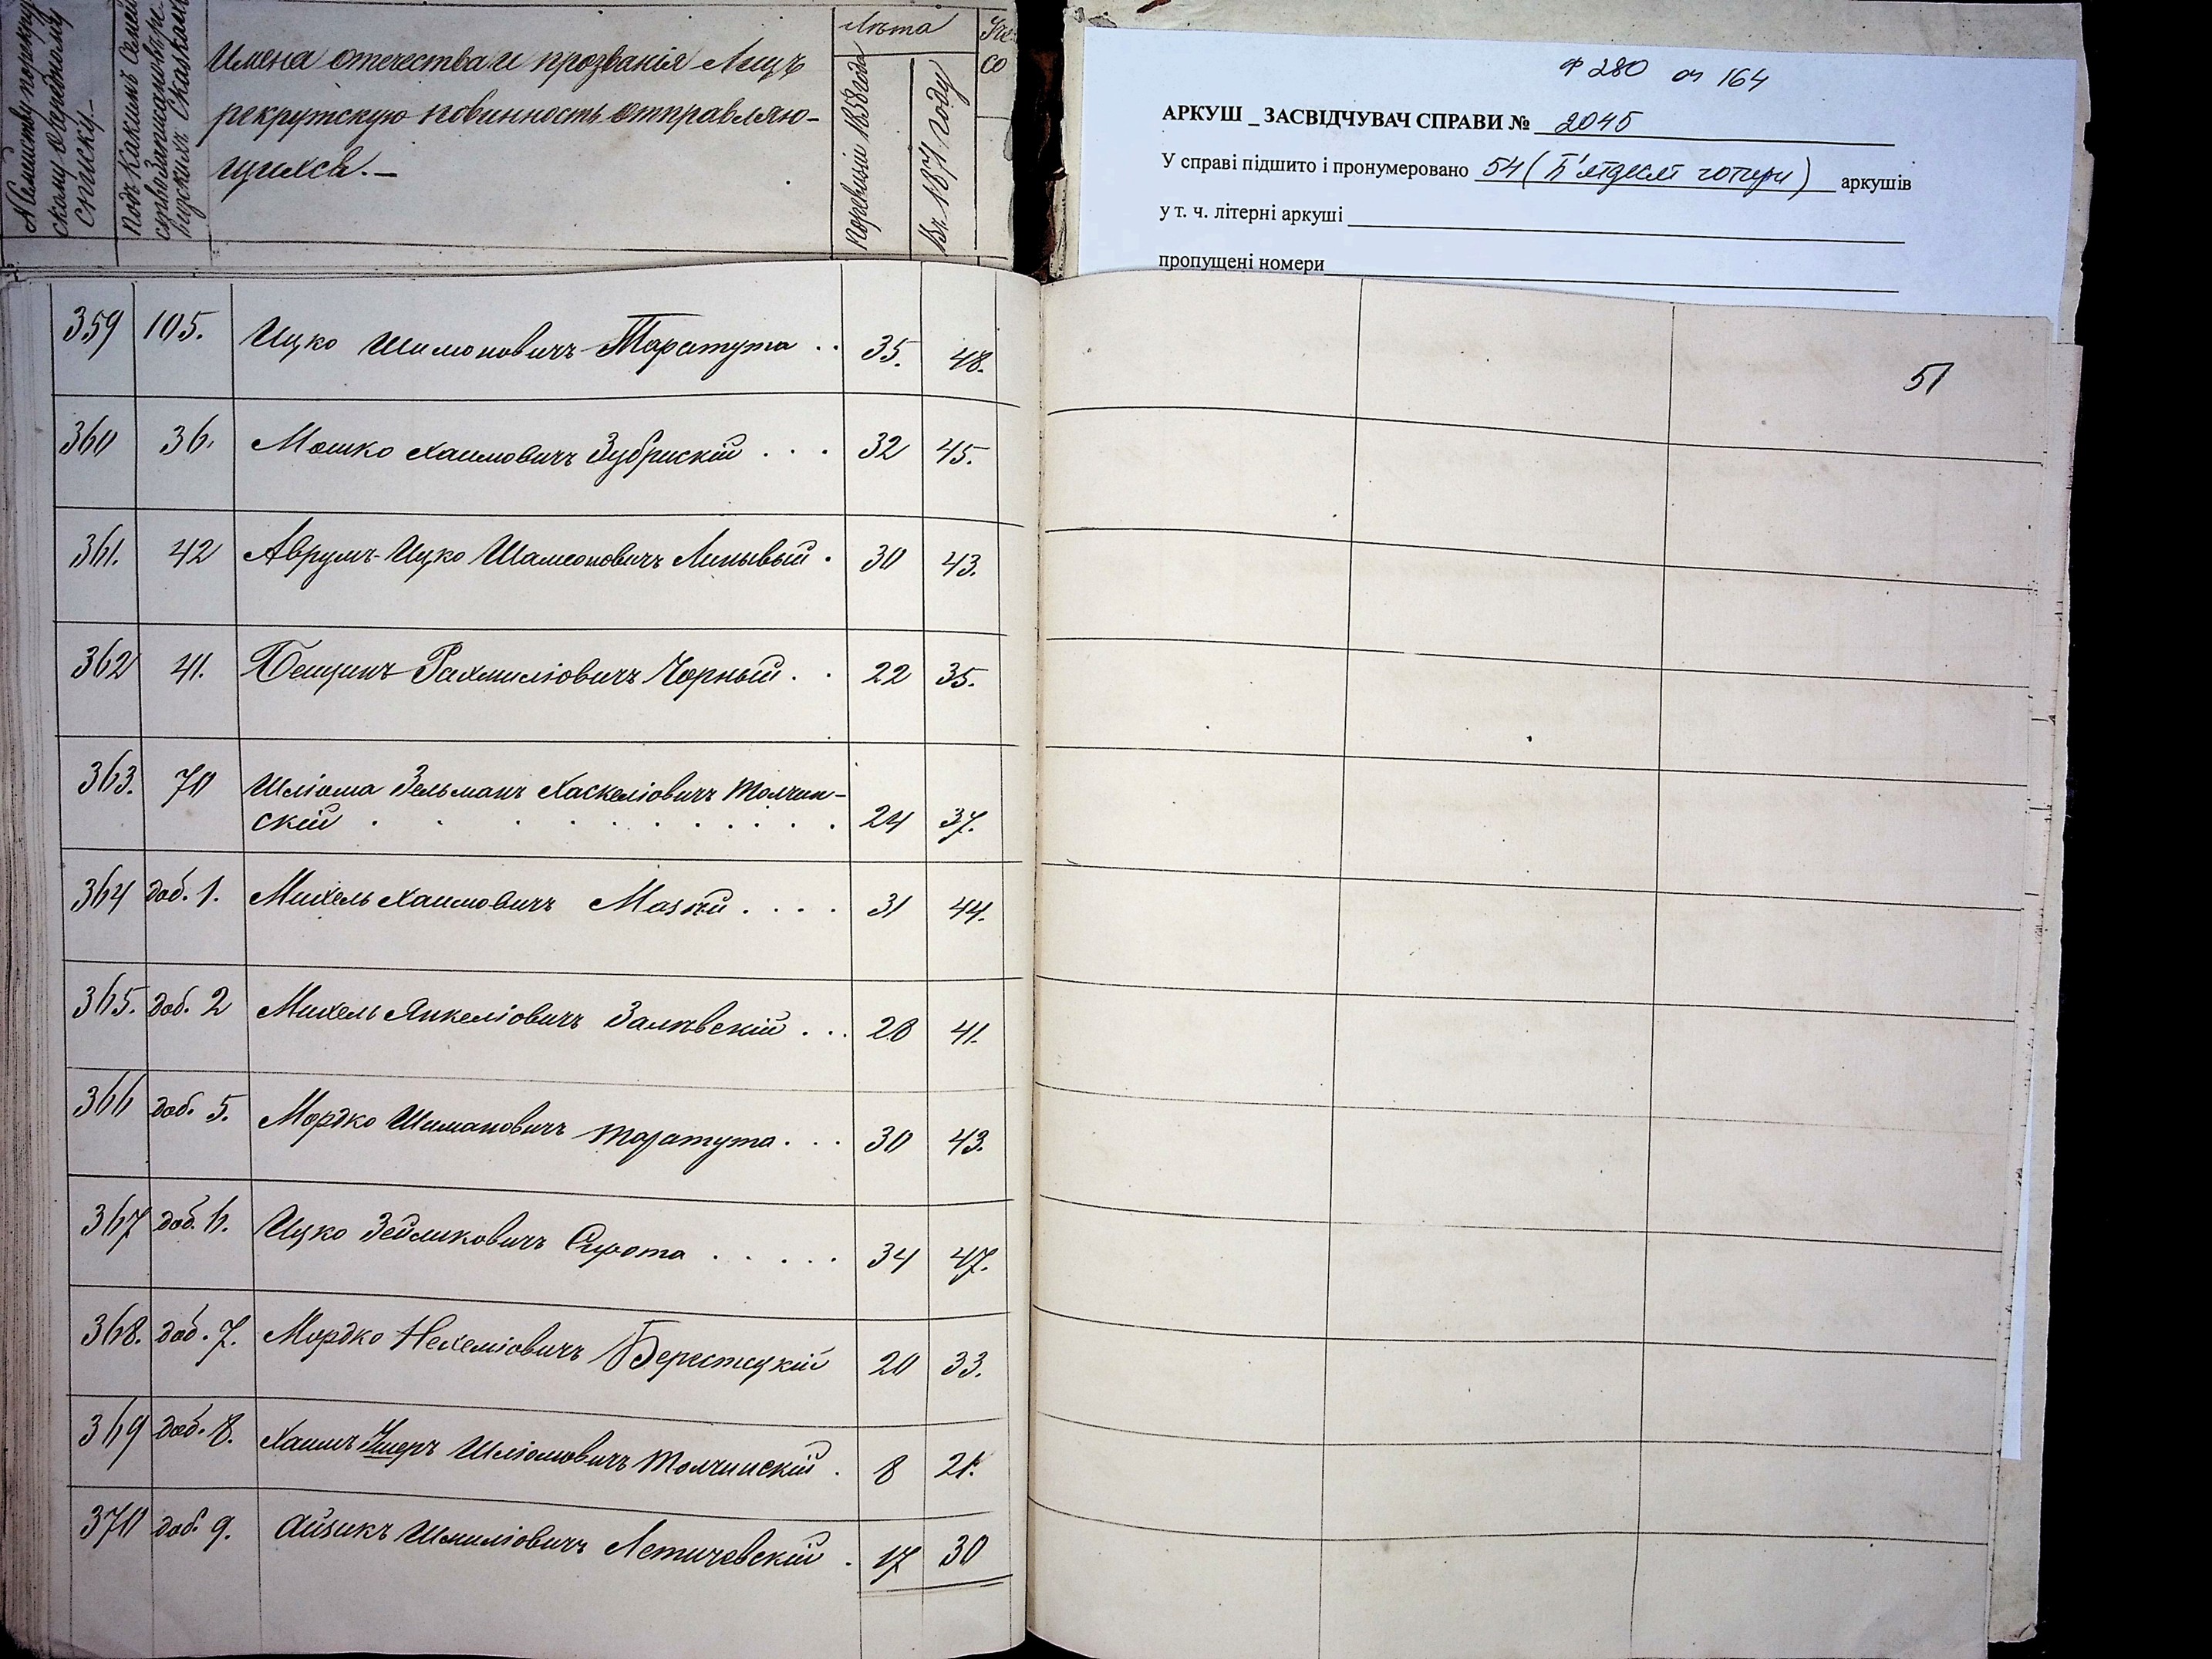 № семейству по рекрут-
скому очередному
списку.-
Подъ какимъ №семей
ства записаны въ ре-
визскихъ сказкахъ
Имена отечества и прозванія Лицъ
рекрутскую повинность отправляю-
щихся.-
Лѣта
По ревизіи 1858 года
Въ 1871 году
со
Ф 280 оп 164
АРКУШ _ ЗАСВІДЧУВАЧ СПРАВИ № 2045
У справі підшито і пронумеровано 54 (П'ятдесят чотири) аркушів
у т. ч. літерні аркуші
пропущені номери
51
359 105. Ицко Шимоновичъ Таратута . . 35. 48.
360 36. Мошко Хаимовичъ Зубрискій . . . 32 45.
361. 42 Аврумъ-Ицко Шамсоновичъ Линывый . 30 43.
362 41. Бенцинъ Рахмиліовичъ Чорный . . 22 35.
363. 70 Шліома Зельманъ Хаскеліовичъ Толчин-
скій . . . . . . . . . . . 24 37.
364 доб. 1. Михель Хаимовичъ Мазкій . . . . 31 44.
365. доб. 2 Михель Янкеліовичъ Залѣвскій . . . 28 41.
366 доб. 5. Мордко Шимановичъ Таратута . . . 30 43.
367 доб. 6. Ицко Зейликовичъ Сирота . . . . . 34 47.
368. доб. 7. Мордко Нехеміовичъ Берестецкій 20 33.
369 доб. 8. Хаимъ Ушеръ Шліомовичъ Толчинскій . 8 21.
370 доб. 9. Айзикъ Шмиліовичъ Летичевскій . 17 30